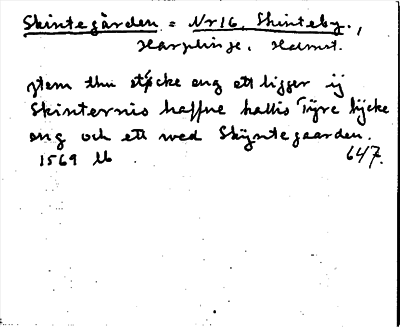 Skintegården = Nr 16, Skinteby.,
Harplinge, Halmst.
jtem thu støcke eng ett ligger ij
Skinternis haffue kallis Tÿre lÿcke
eng och ett wed Skÿntegaarden.
1569 lb 647.